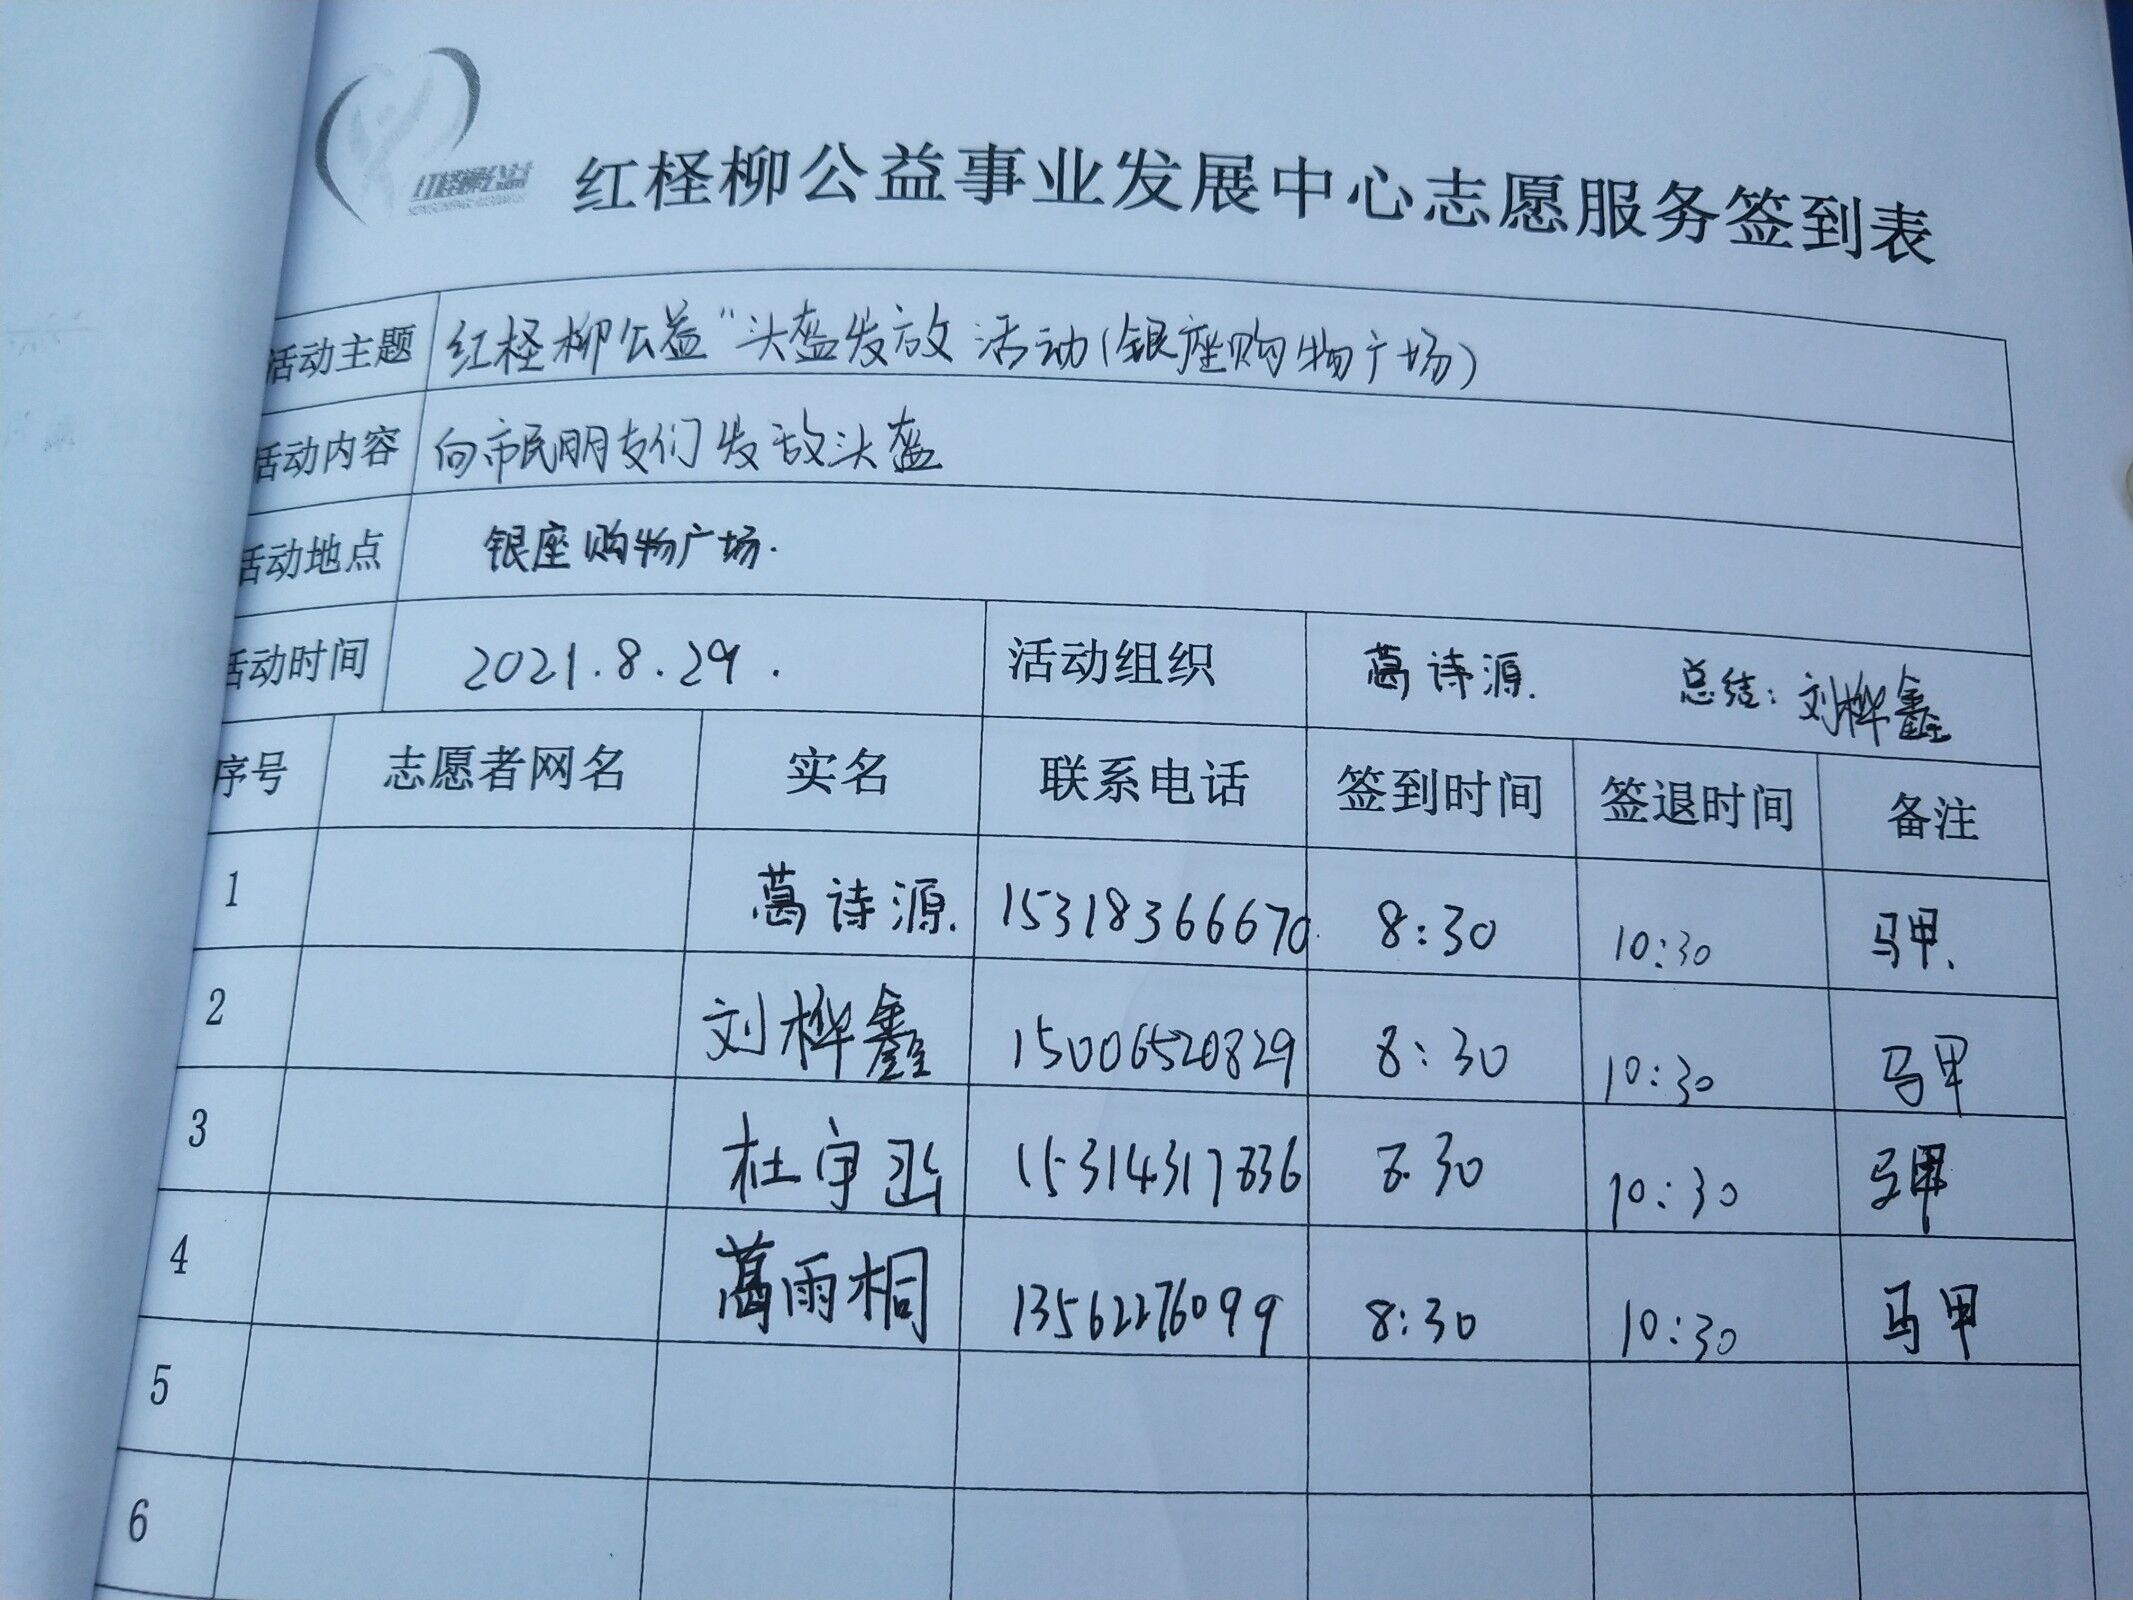 红柽柳公益
红柽柳公益事业发展中心志愿服务签到表
活动主题 红柽柳公益“头盔发放 活动(银座购物广场)
活动内容 向市民朋友们发放头盔
活动地点 银座购物广场.
活动时间 2021.8.29. 活动组织 葛诗源. 总结:刘桦鑫
序号 志愿者网名 实名 联系电话 签到时间 签退时间 备注
1 葛诗源. 15318366670. 8:30 10:30 马甲.
2 刘桦鑫 15006520829 8:30 10:30 马甲
3 杜宇函 15314317836 8.30 10:30 马甲
4 葛雨桐 13562276099 8:30 10:30 马甲
5
6